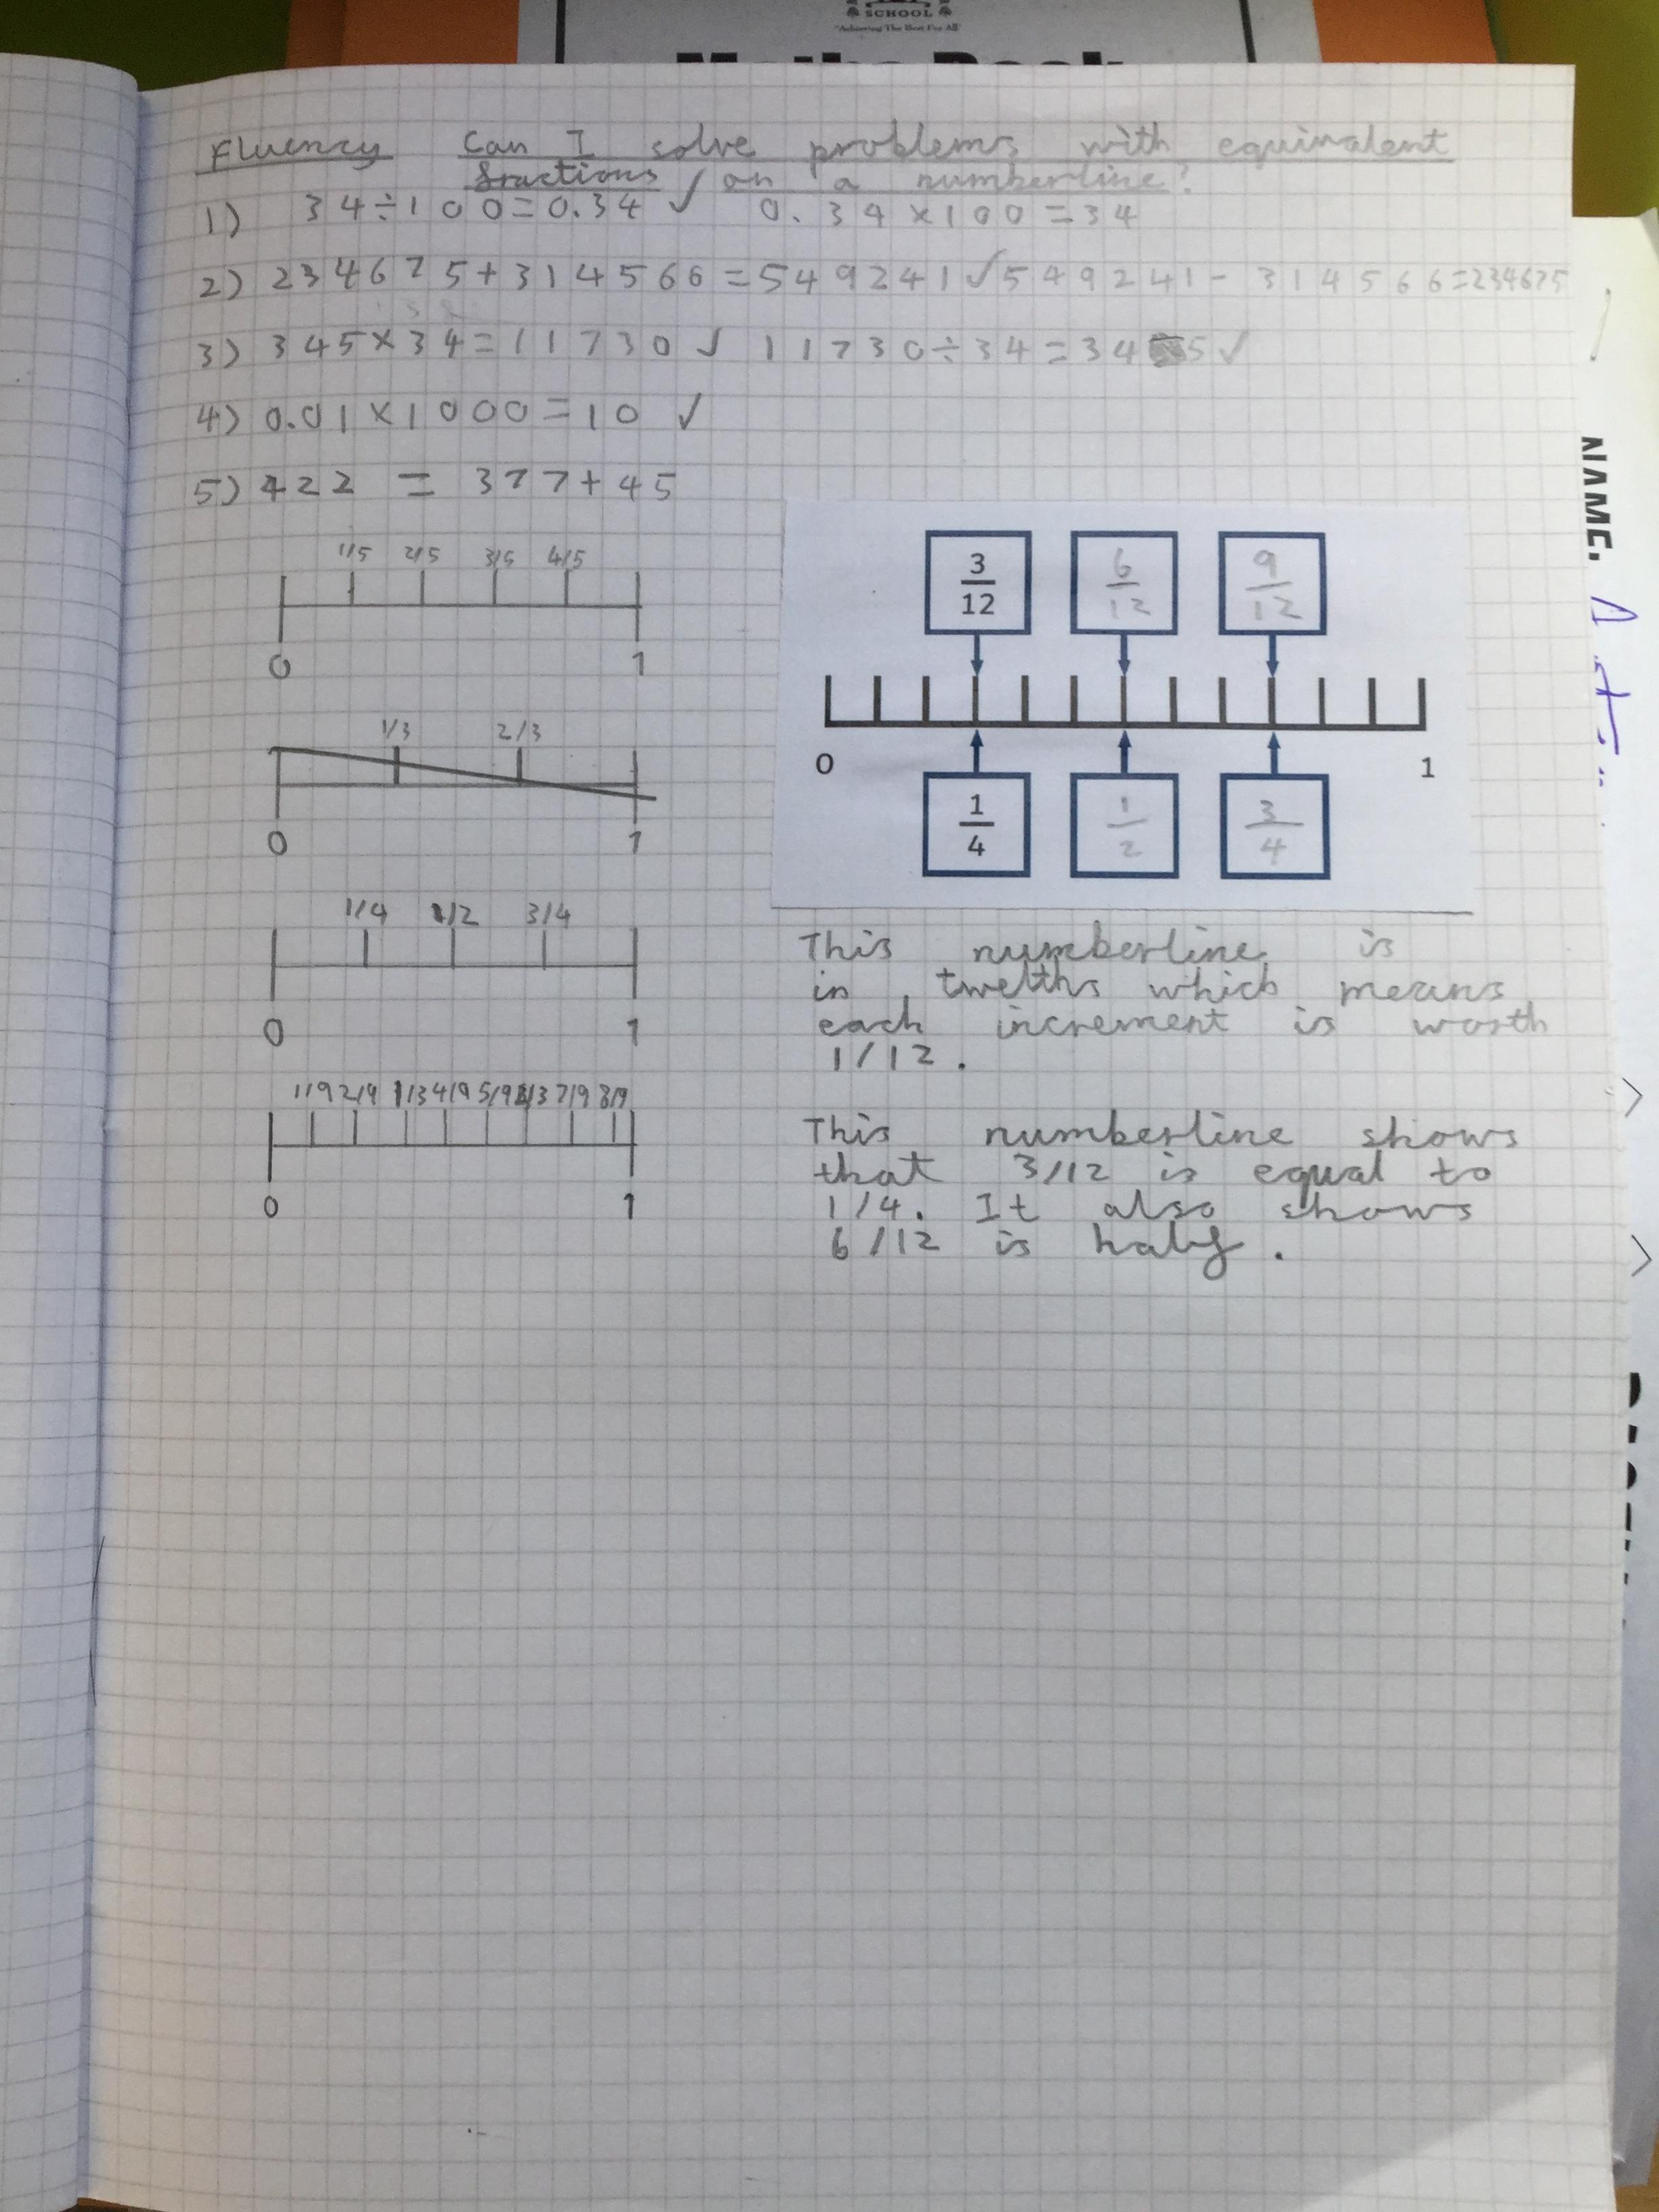 SCHOOL
"Achieving The Best For All"
Maths Book
Fluency Can I solve problems with equivalent
fractions on a numberline?
1) 34÷100=0.34 ✓ 0.34×100=34
2) 234675+314566=549241 ✓ 549241-314566=234675
3) 345×34=11730 ✓ 11730÷34=345 ✓
4) 0.01×1000=10 ✓
5) 422 = 377+45
1/5 2/5 3/5 4/5
0 1
1/3 2/3
0 1
1/4 1/2 3/4
0 1
1/9 2/9 1/3 4/9 5/9 2/3 7/9 8/9
0 1
3/12 6/12 9/12
0 1
1/4 1/2 3/4
This numberline is
in twelths which means
each increment is worth
1/12.
This numberline shows
that 3/12 is equal to
1/4. It also shows
6/12 is half.
NAME: